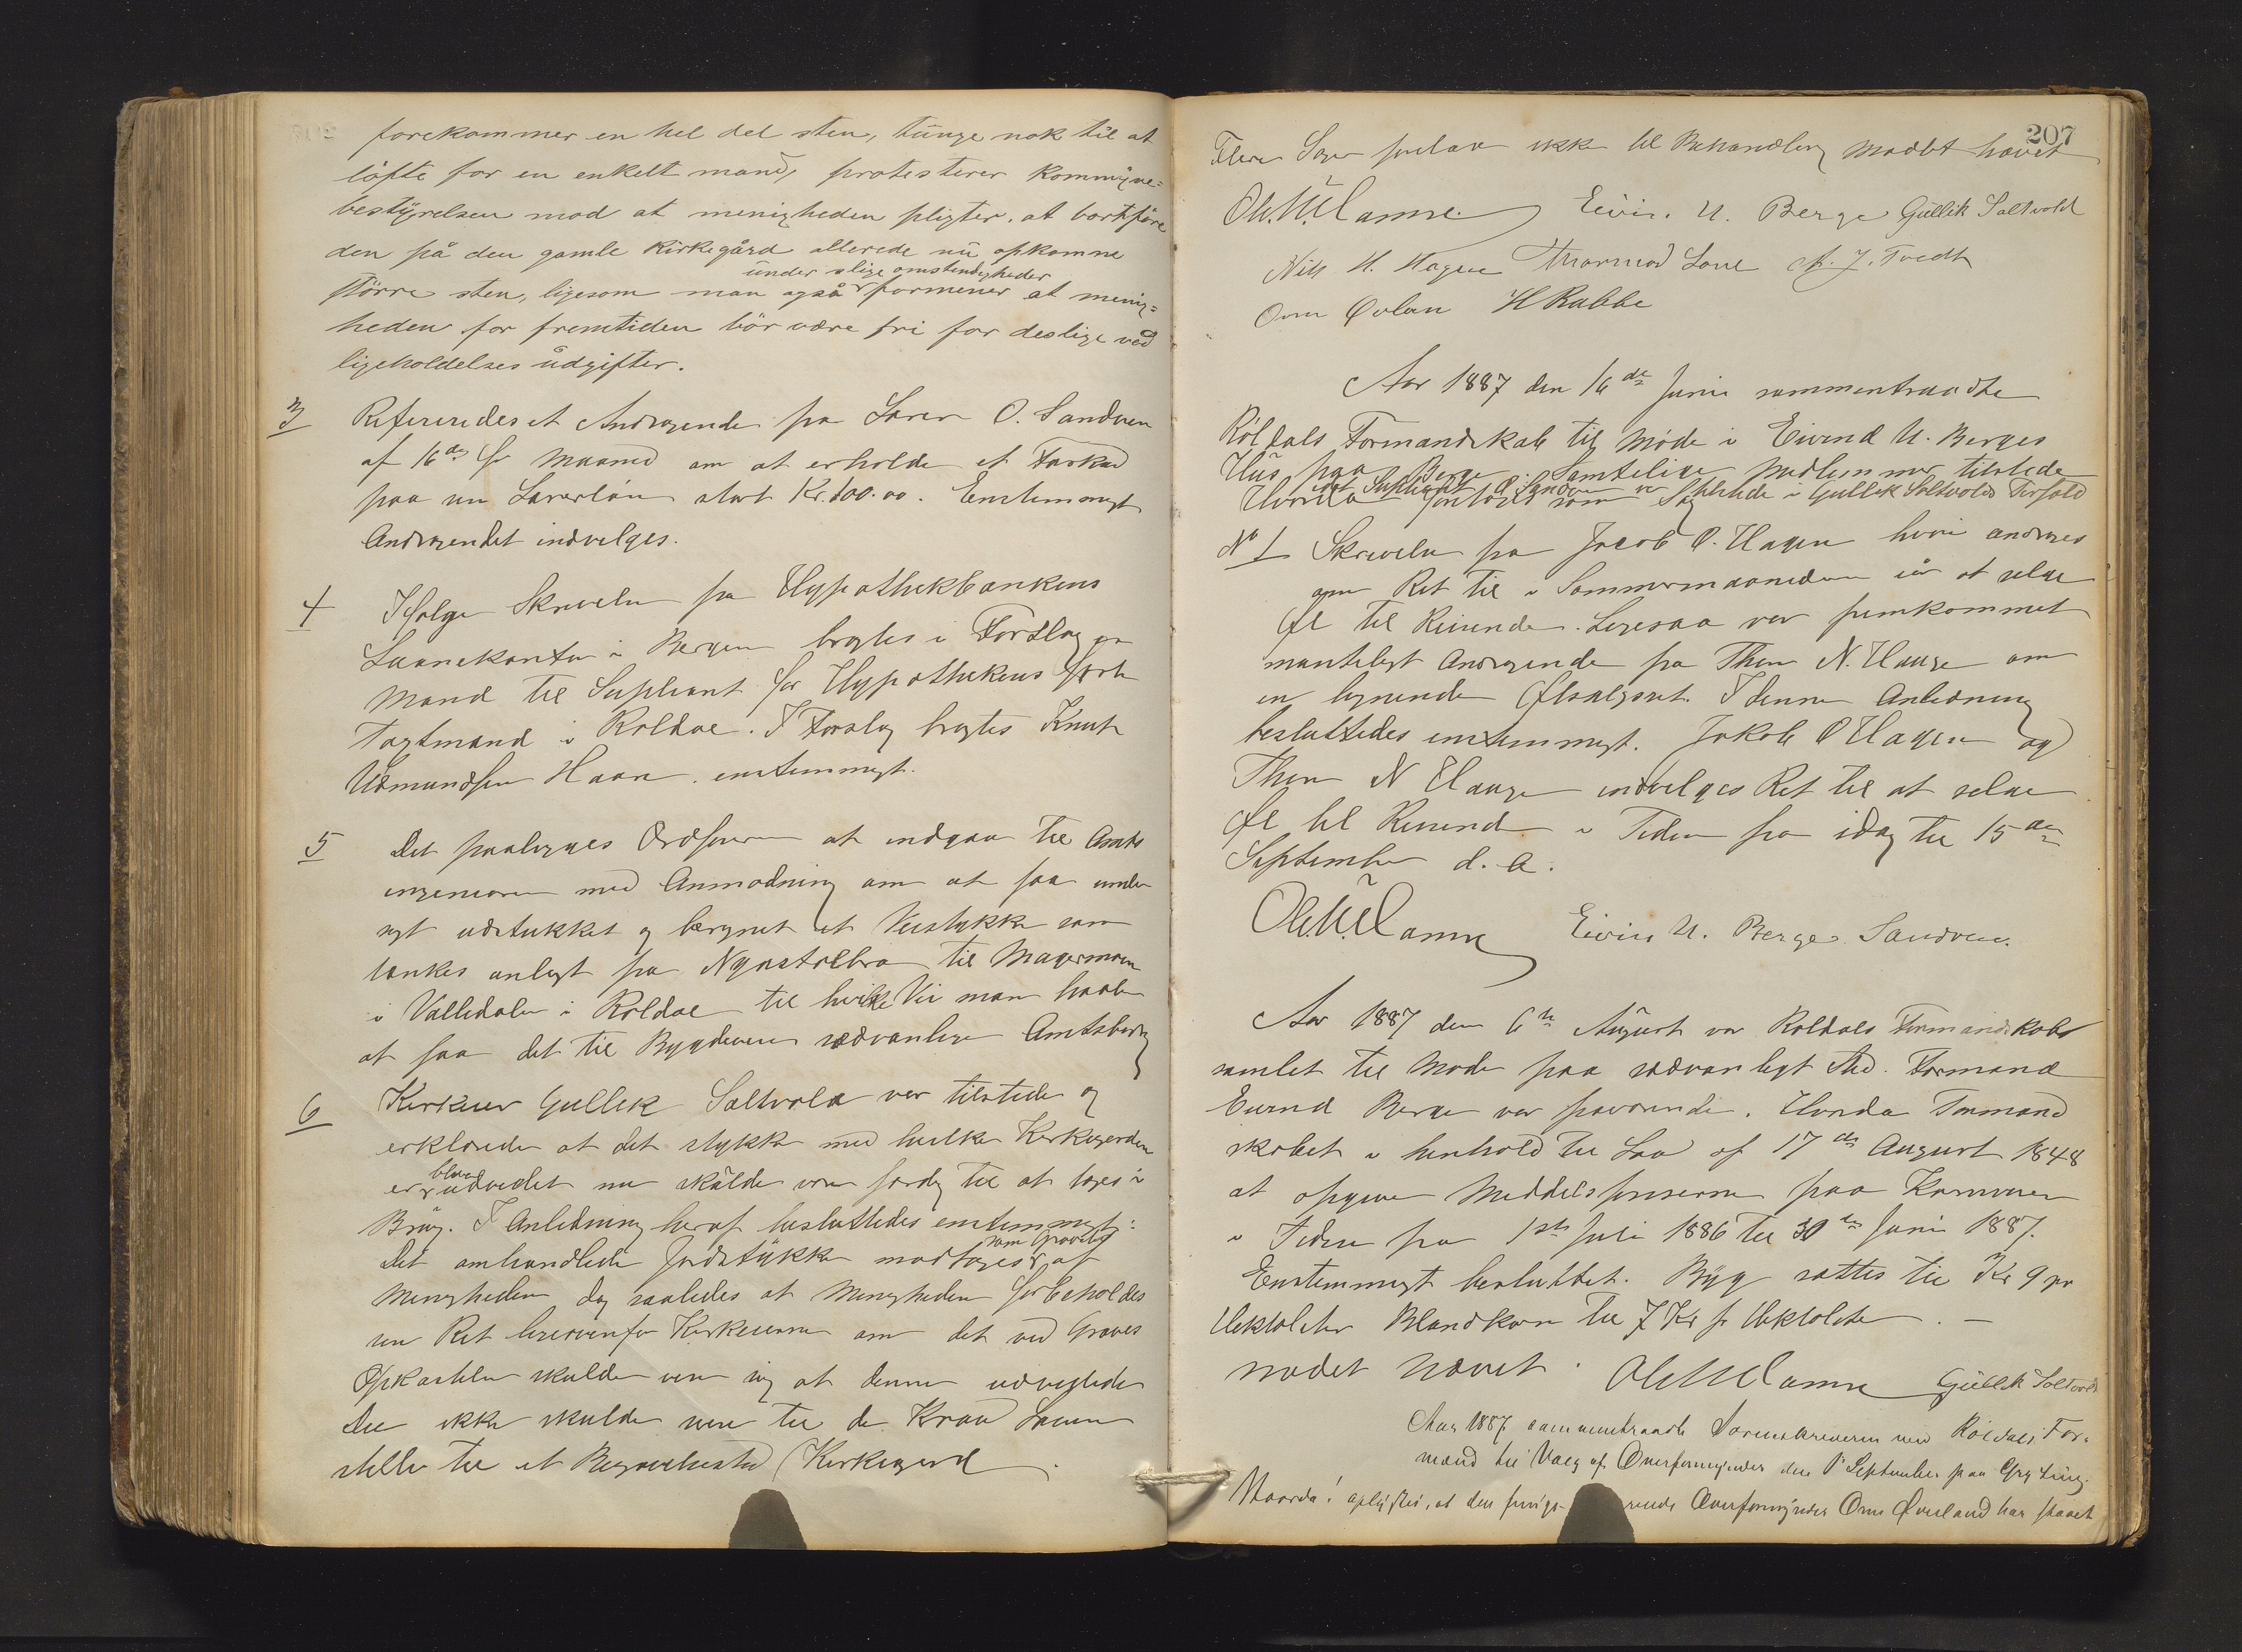 forekommer en hel del sten, tunge nok til at
løfte for en enkelt mand, protesterer kommune=
bestyrelsen mod at menigheden pligter at bortføre
den på den gamle kirkegård allerede nu opkomne
under slige omstendigheder
større sten, ligesom man også formener at menig=
heden for fremtiden bør være fri for deslige ved
ligeholdelses udgifter.
3 Refereredes et Andragende fra Lærer O. Sandven
af 16de f. Maaned om at erholde et Forskud
paa sin Lærerløn stort Kr. 100.00. Enstemmigt
Andragendet indvilges.
4 Ifølge Skrivelse fra Hypothekbankens
Laanekontor i Bergen bragtes i Forslag en
Mand til Supleant for Hypothekens
Taxtmand i Røldal. I Forslag bragtes Knut
Udmundsen Haare enstemmigt.
5 Det paalegges Ordføreren at indgaa til Amts
ingeniøren med Anmodning om at faa under
søgt udstukket og beregnet et Veistykke som
tænkes anlagt fra Nyastølbro til Magermoen
i Valledalen i Røldal til hvilke Vei man haaber
at faa det til Bygdeveie sædvanlige Amtsbidrag
6 Kirkeeier Gullik Saltvold var tilstede og
erklærede at det stykke med hvilke Kirkegaarden
bleven
er udvidet nu skulde være færdig til at tages i
Brug. I Anledning heraf besluttedes enstemmigt:
som Gravsted
Det omhandlede Jordstykke modtages af
Menigheden dog saaledes at Menigheden forbeholdes
sin Ret ligeoverfor Kirkeeieren om det ved Graves
Opkastelse skulde vise sig at denne udvidede
Del ikke skulde svare til de Krav Loven
stiller til et Begravelsessted (Kirkegaard
207
Flere Sager forelaa ikke til Behandling Mødet hævet
Ole M. Lamne Eivin. U. Berge Gullik Saltvold
Nils H. Hagen Thormod Lone J. Tvedt
Orm Øvlan H Rabbe
Aar 1887 den 16de Juni sammentraadte
Røldals Formandskab til Møde i Eivind U. Berges
Hus paa Berge. Samtelige Medlemmer tilstede
idet Supleant O. Sandven var tilstede i Gullik Saltvolds Forfald
Hvorda foretoges som Sag
No 1 Skrivelse fra Jacob O. Hagen hvori andrages
om Ret til i Sommermaanederne iår at selge
Øl til Reisende. Ligesaa var fremkommet
mundtligt Andragende fra Thor N. Hauge om
en lignende Ølsalgsret. I denne Anledning
besluttedes enstemmigt. Jakob O Hagen og
Thor N Hauge indvilges Ret til at selge
Øl til Reisende i Tiden fra idag til 15de
September d. A.
Ole M. Lamne Eivin U. Berge Sandven.
Aar 1887 den 6te August var Røldals Formandskab
samlet til Møde paa sædvanligt Sted. Formand
Eivind Berge var fraværende. Hvorda Formand
skabet i henhold til Lov af 17de August 1848
at opgive Middelspriserne paa Kornvarer
i Tiden fra 1ste Juli 1886 til 30te Juni 1887.
Enstemmigt besluttet. Byg sattes til Kr 9 pr
Hektoliter Blandkorn til 7 Kr pr Hektoliter. —
Mødet hævet. Ole M Lamne Gullik Saltvold
Aar 1887 sammentraadte Sorenskriveren med Røldals For-
mænd til Valg af Overformynder den September paa Grytting.
Hvorda! oplystes, at den fungerende Overformynder Orm Øverland har faaet